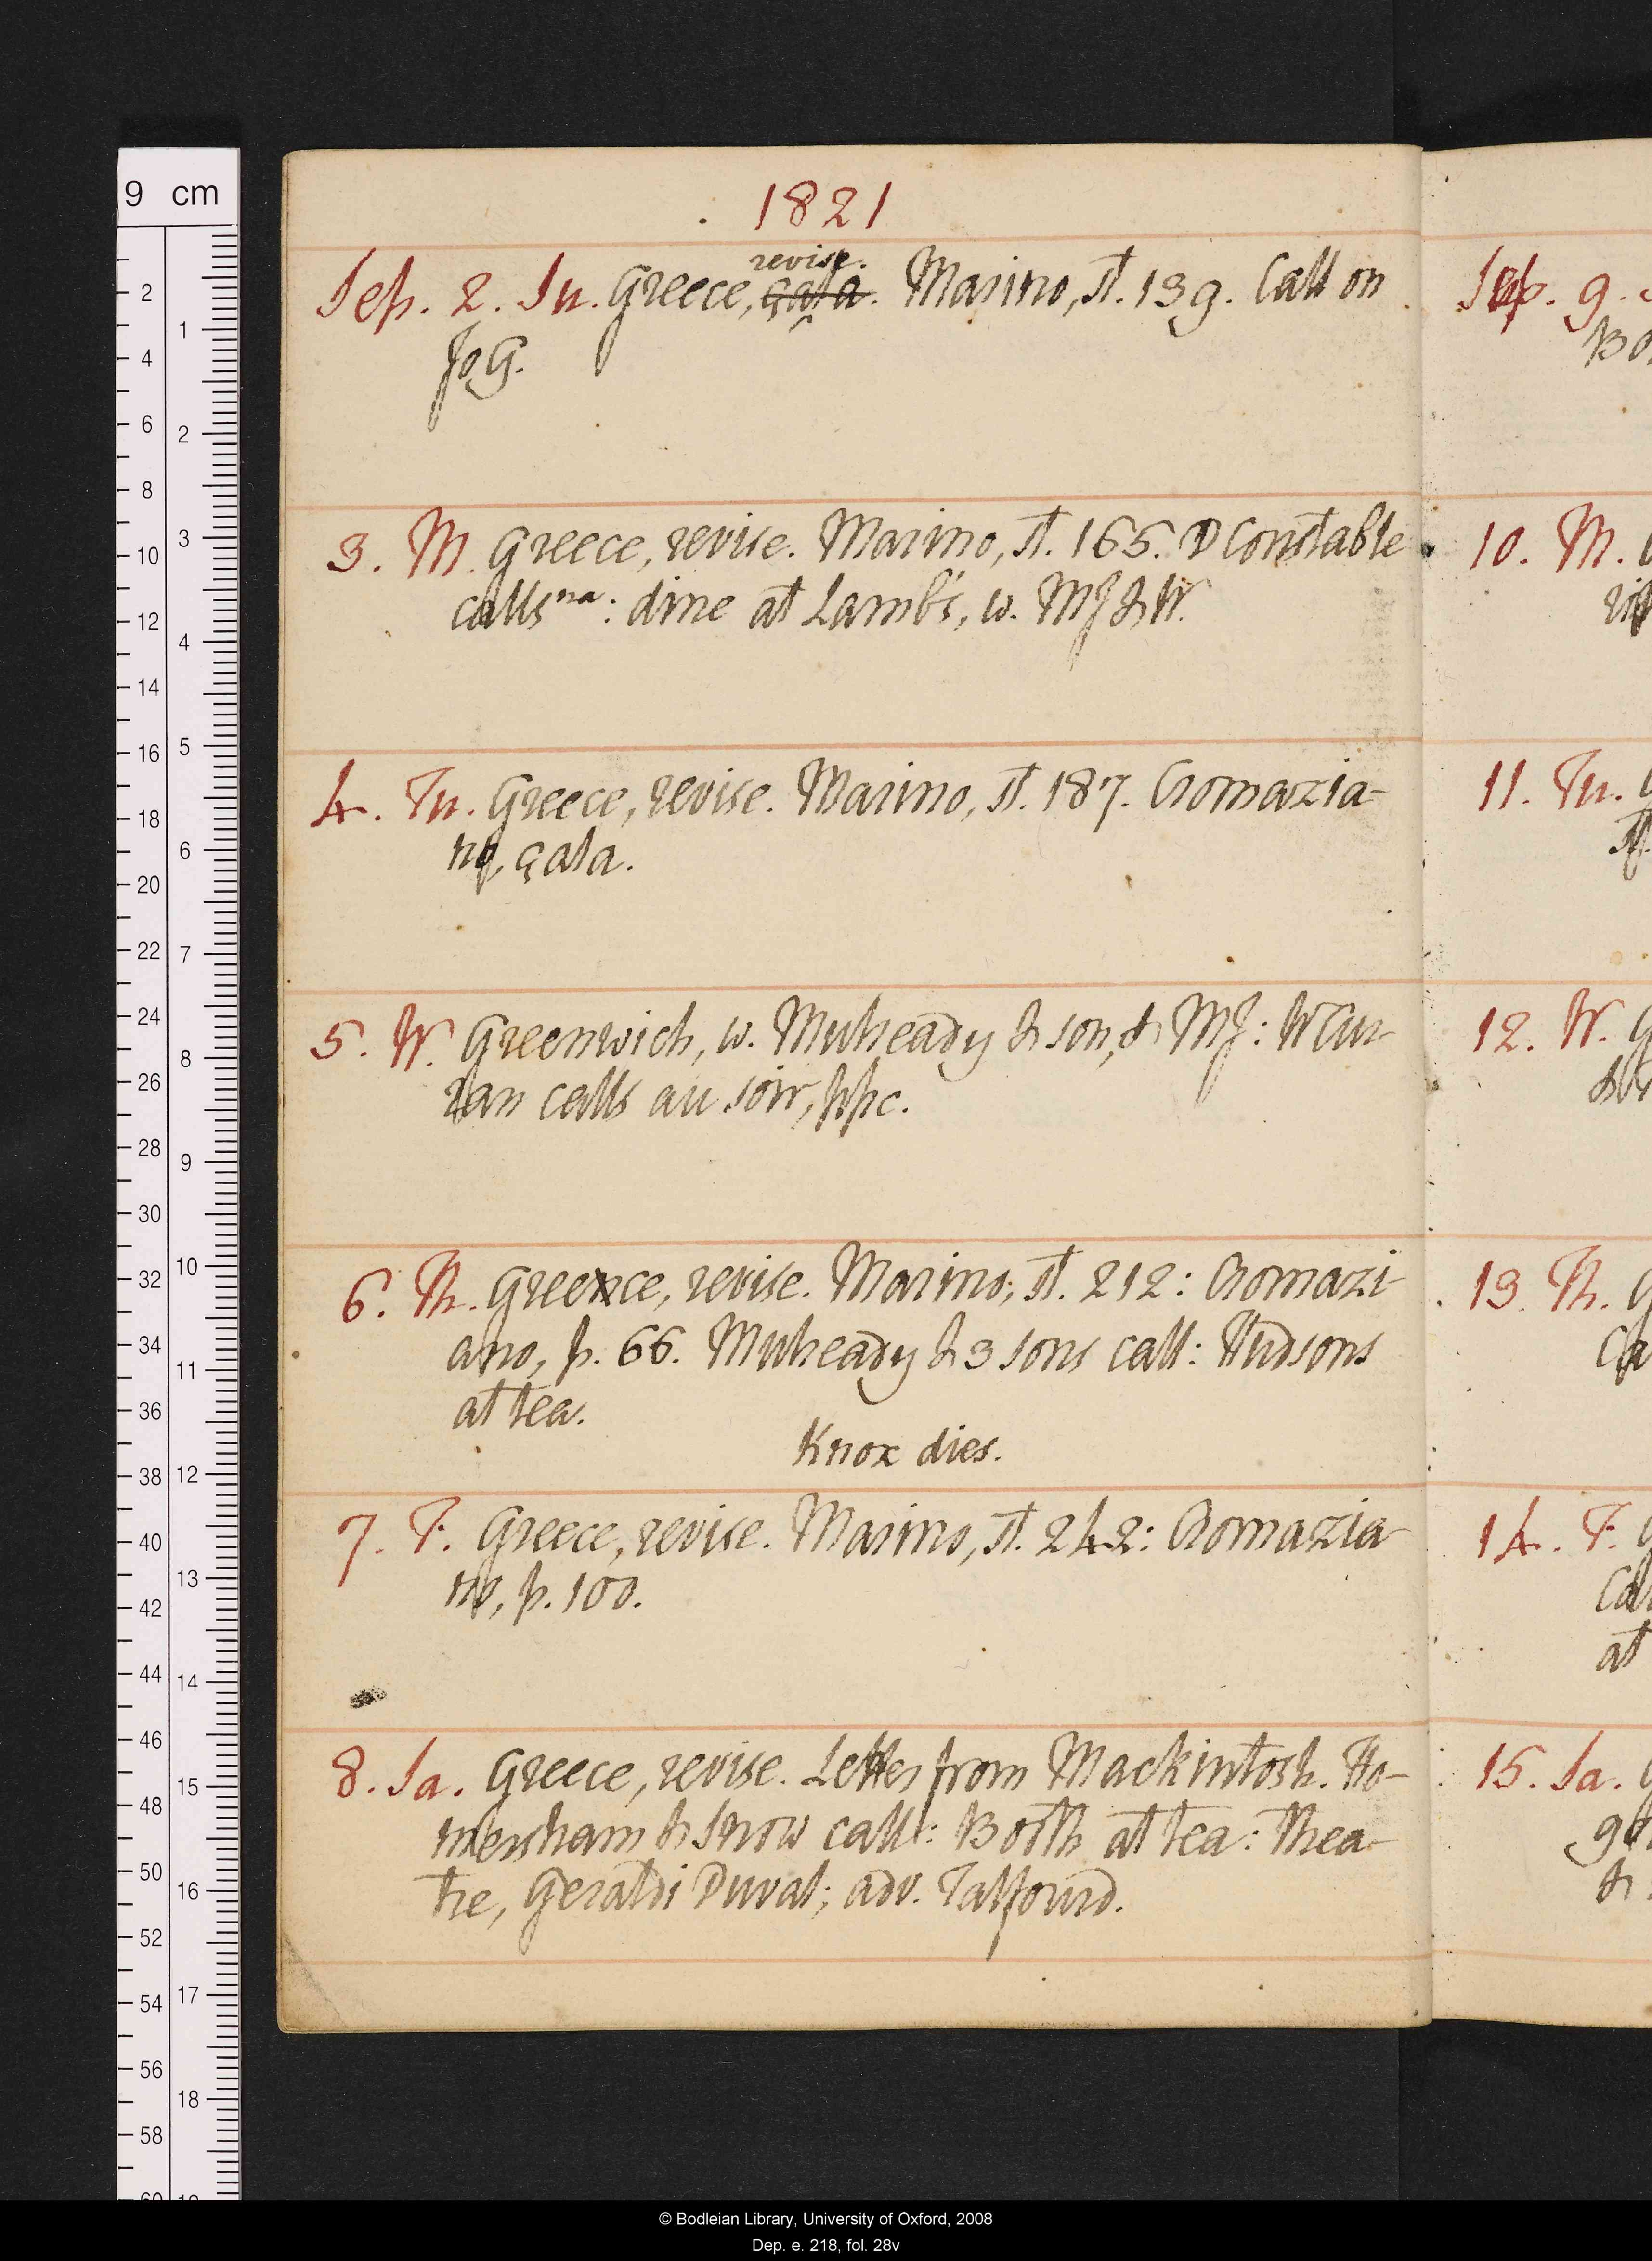 1821
Sep. 2. Su. Greece, çala. revise. Marino, st. 139. Call on
Jo G.
3. M. Greece, revise. Marino, st. 165. D Constable
calls na: dine at Lamb's, w. MJ & W.
4. Tu. Greece, revise. Marino, st. 187. Cromazia-
no, çala.
5. W. Greenwich, w. Mulready & son, & MJ: W Cur-
ran calls au soir, ppc.
6. Th. Greece, revise. Marino, st. 212: Cromazi-
ano, p. 66. Mulready & 3 sons call: Hudsons
at tea.
Knox dies.
7. F. Greece, revise. Marino, st. 242: Cromazia-
no, p. 100.
8. Sa. Greece, revise. Letter from Mackintosh. Ho-
mersham & Snow call: Booth at tea: Thea-
tre, Geraldi Duval; adv. Talfourd.
Sep. 9.
10. M.
11. Tu.
12. W.
13. Th.
14. F.
at
15. Sa.
9 cm
© Bodleian Library, University of Oxford, 2008
Dep. e. 218, fol. 28v